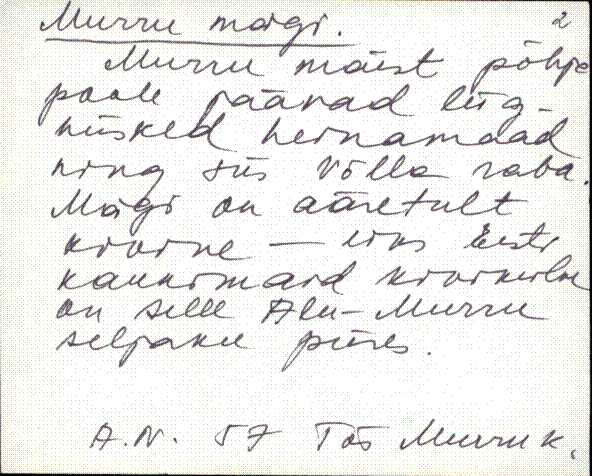 Murru mägi. 2
Murru mäest põhja
poole jäävad liig-
niisked heinamaad
ning siis Võlla raba.
Mägi on ääretult
kivine — üks Eesti
kaunimaid kivikülve
on selle Alu-Murru
seljaku piires.
A.N. 57 Tõs Murru k.